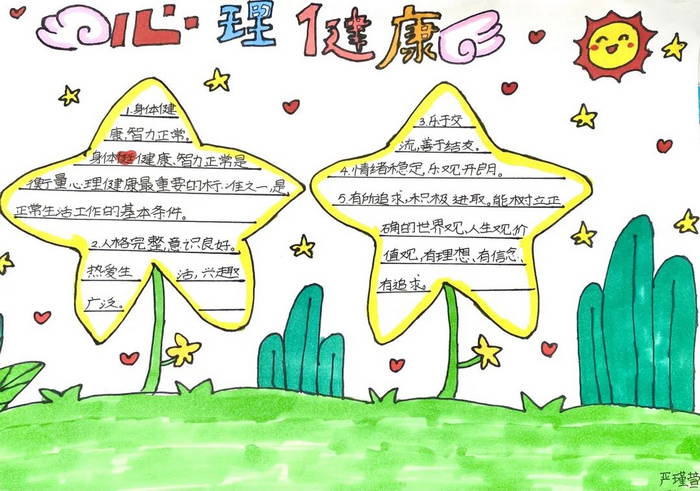 心理健康
1.身体健
康、智力正常。
身体健康、智力正常是
衡量心理健康最重要的标准之一,是
正常生活工作的基本条件。
2.人格完整,意识良好。
热爱生活,兴趣
广泛。
3.乐于交
流,善于结友。
4.情绪稳定,乐观开朗。
5.有所追求,积极进取。能树立正
确的世界观,人生观,价
值观,有理想、有信念、
有追求。
严瑾